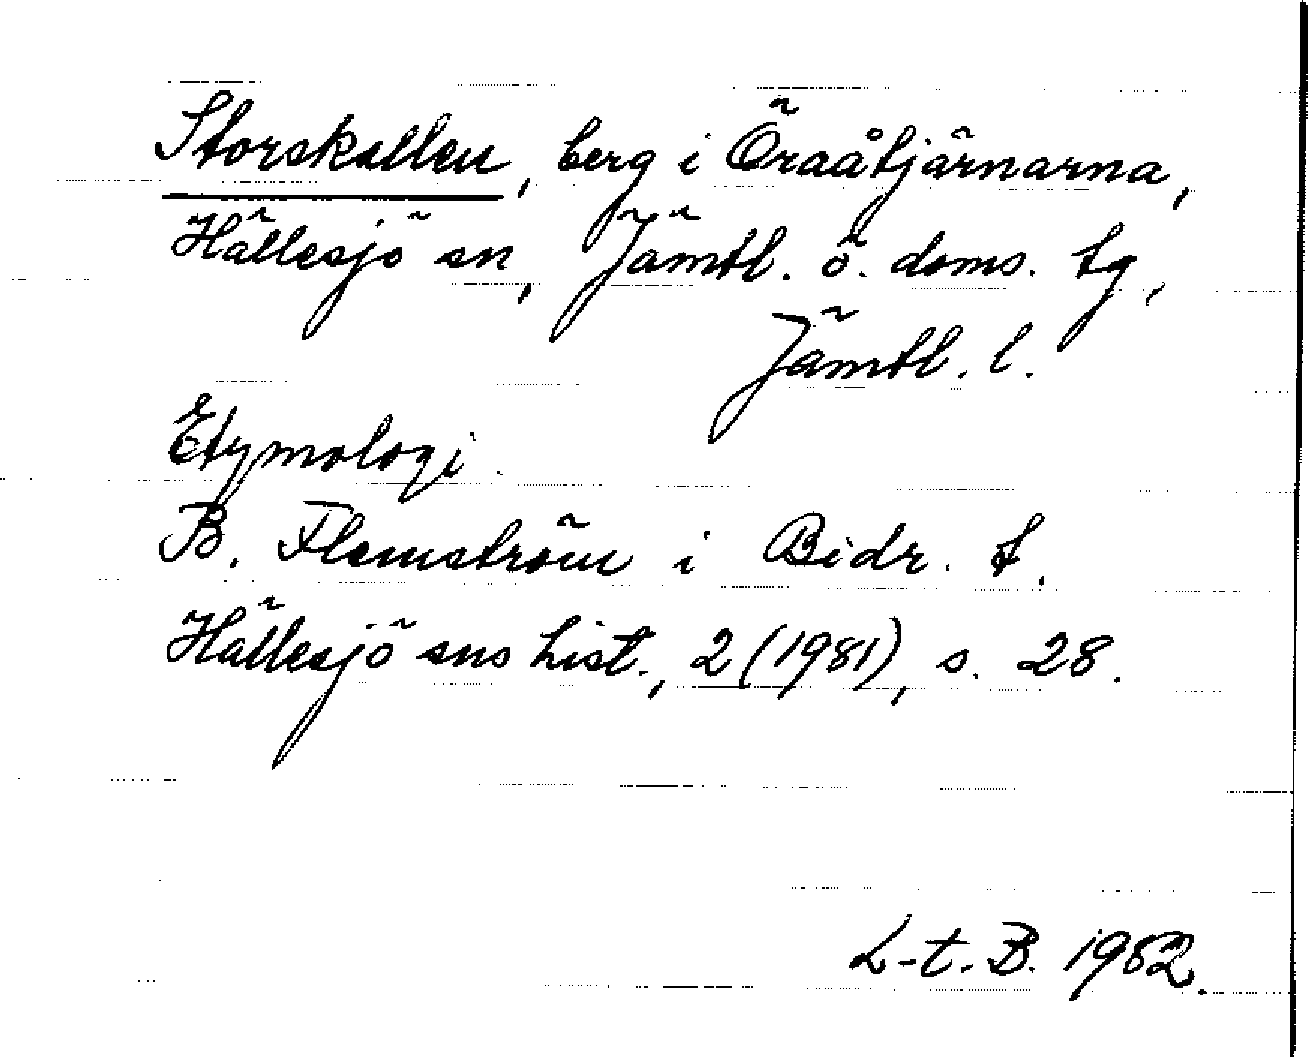 Storskallen, berg i Öraåtjärnarna,
Hällesjö sn, Jämtl. ö. doms. tg,
Jämtl. l.
Etymologi.
B. Flemström i Bidr. t.
Hällesjö sns hist., 2 (1981), s. 28.
L-t. B. 1982.